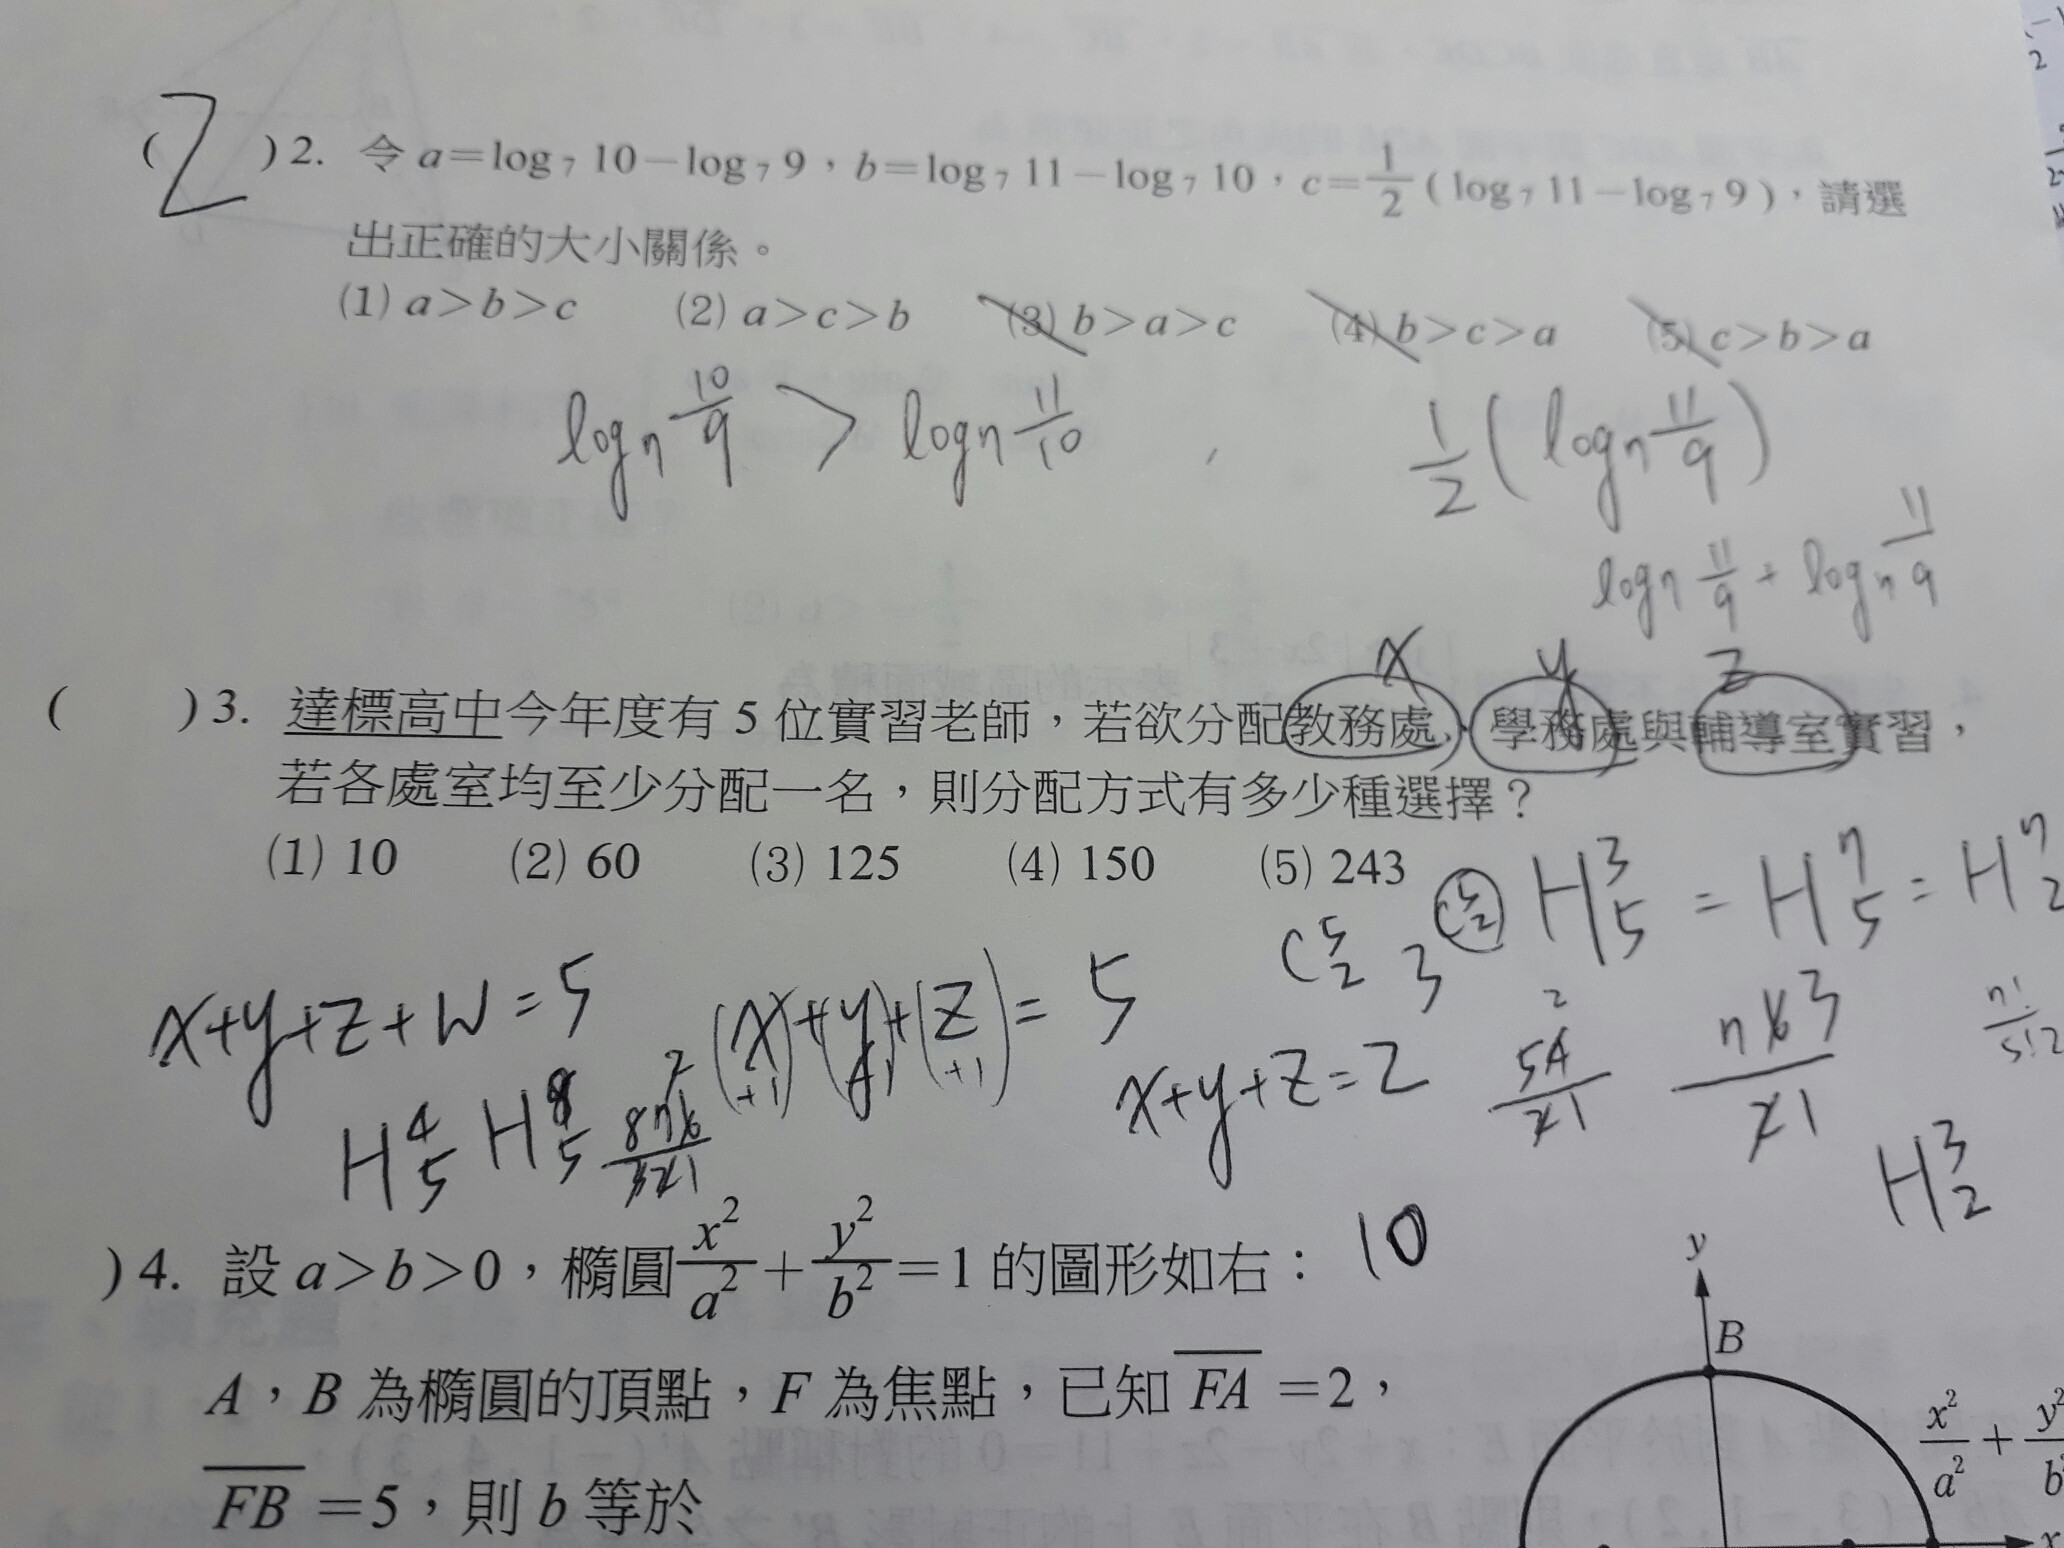 (2)2. 令 a=log₇10−log₇9，b=log₇11−log₇10，c=\frac{1}{2}(log₇11−log₇9)，請選
出正確的大小關係。
(1) a>b>c (2) a>c>b (3) b>a>c (4) b>c>a (5) c>b>a
log₇ 10/9 > log₇ 11/10 , 1/2 (log₇ 11/9)
log₇ 11/9 log₇ 11/9
x y z
( )3. 達標高中今年度有 5 位實習老師，若欲分配教務處、學務處與輔導室實習，
若各處室均至少分配一名，則分配方式有多少種選擇？
(1) 10 (2) 60 (3) 125 (4) 150 (5) 243
C⁵₂ H³₅ = H⁷₅ = H⁷₂
C⁵₂ 3
x+y+z+w=5 (x+1)+(y+1)+(z+1)=5
x+y+z=2
H⁴₅ H⁸₅
H³₂
)4. 設 a>b>0，橢圓 x²/a² + y²/b² =1 的圖形如右： 10
y
B
A，B 為橢圓的頂點，F 為焦點，已知 \overline{FA} =2，
x²/a² + y²/b²
\overline{FB} =5，則 b 等於
x